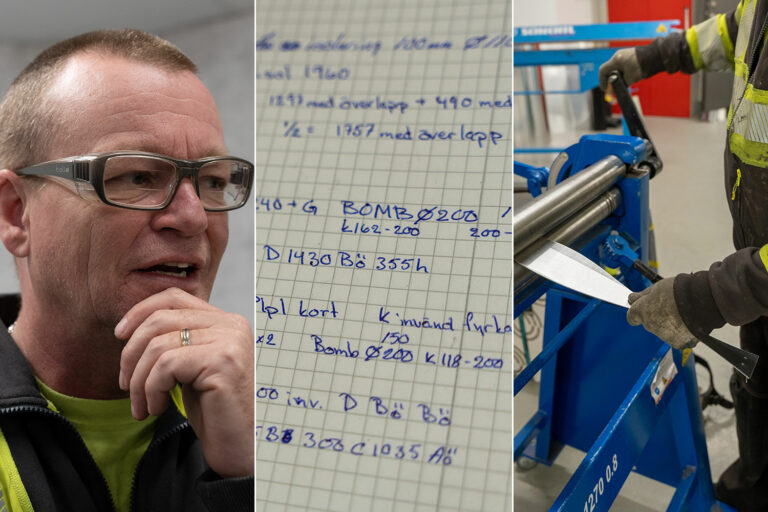 isolering 100mm Ø110
1960
1297 med överlapp + 490 med
1/2 = 1757 med överlapp
40+G BOMB Ø200
K162-200 200-
D 1430 Bö 355h
plpl kort K invänd fyrka
x2 Bomb Ø200 K118-200
150
00 inv. D Bö Bö
300 C1035 Aö
1270 0.8